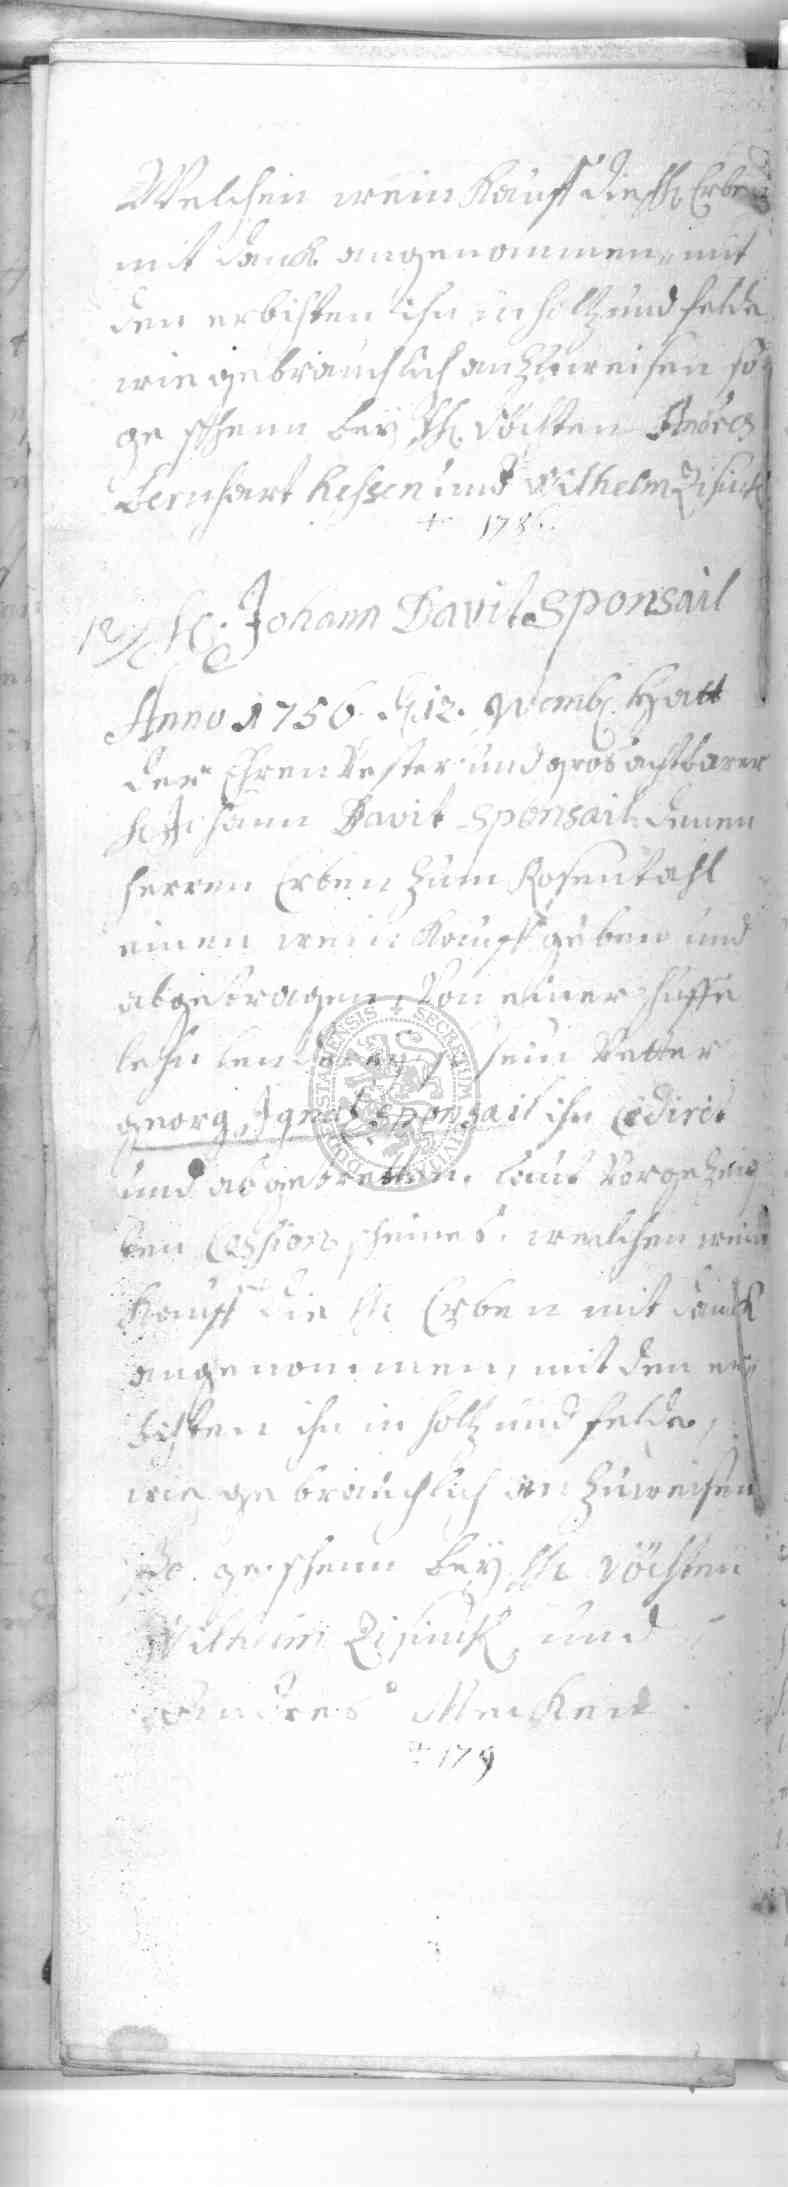 Welchen wein Kauff die hh Erben
mit danck angenommen, mit
den erbisten ihn in holtz und felde
wie gebrauchlich anzuweisen so
geschehen bey hh Vögten
Bernhart Kehsen und Wilhelm Zisinck
+ 178
12/ H: Johann Davit Sponsail
Anno 1756 d 12. Hatt
der Ehren Vester und gros achtbarer
H Johann Davit Sponsail denen
herren Erben zum Rosentahl
einen wein Kauff geben und
abgetragen, Von einer huffe
sein Vetter
georg Ignat Sponsail ihn Cedirt
und abgetretten. laut Vorgezeig
ten Cession scheines. welchen wein
Kauff die hh Erben mit danck
angenommen, mit den er
bisten ihn in holtz und felde,
wie gebrauchlich anzuweisen
so geschehen bey hh Vögten
Wilhelm Zisinck und
Andres Mencken
+ 179
SECRETUM CIVI